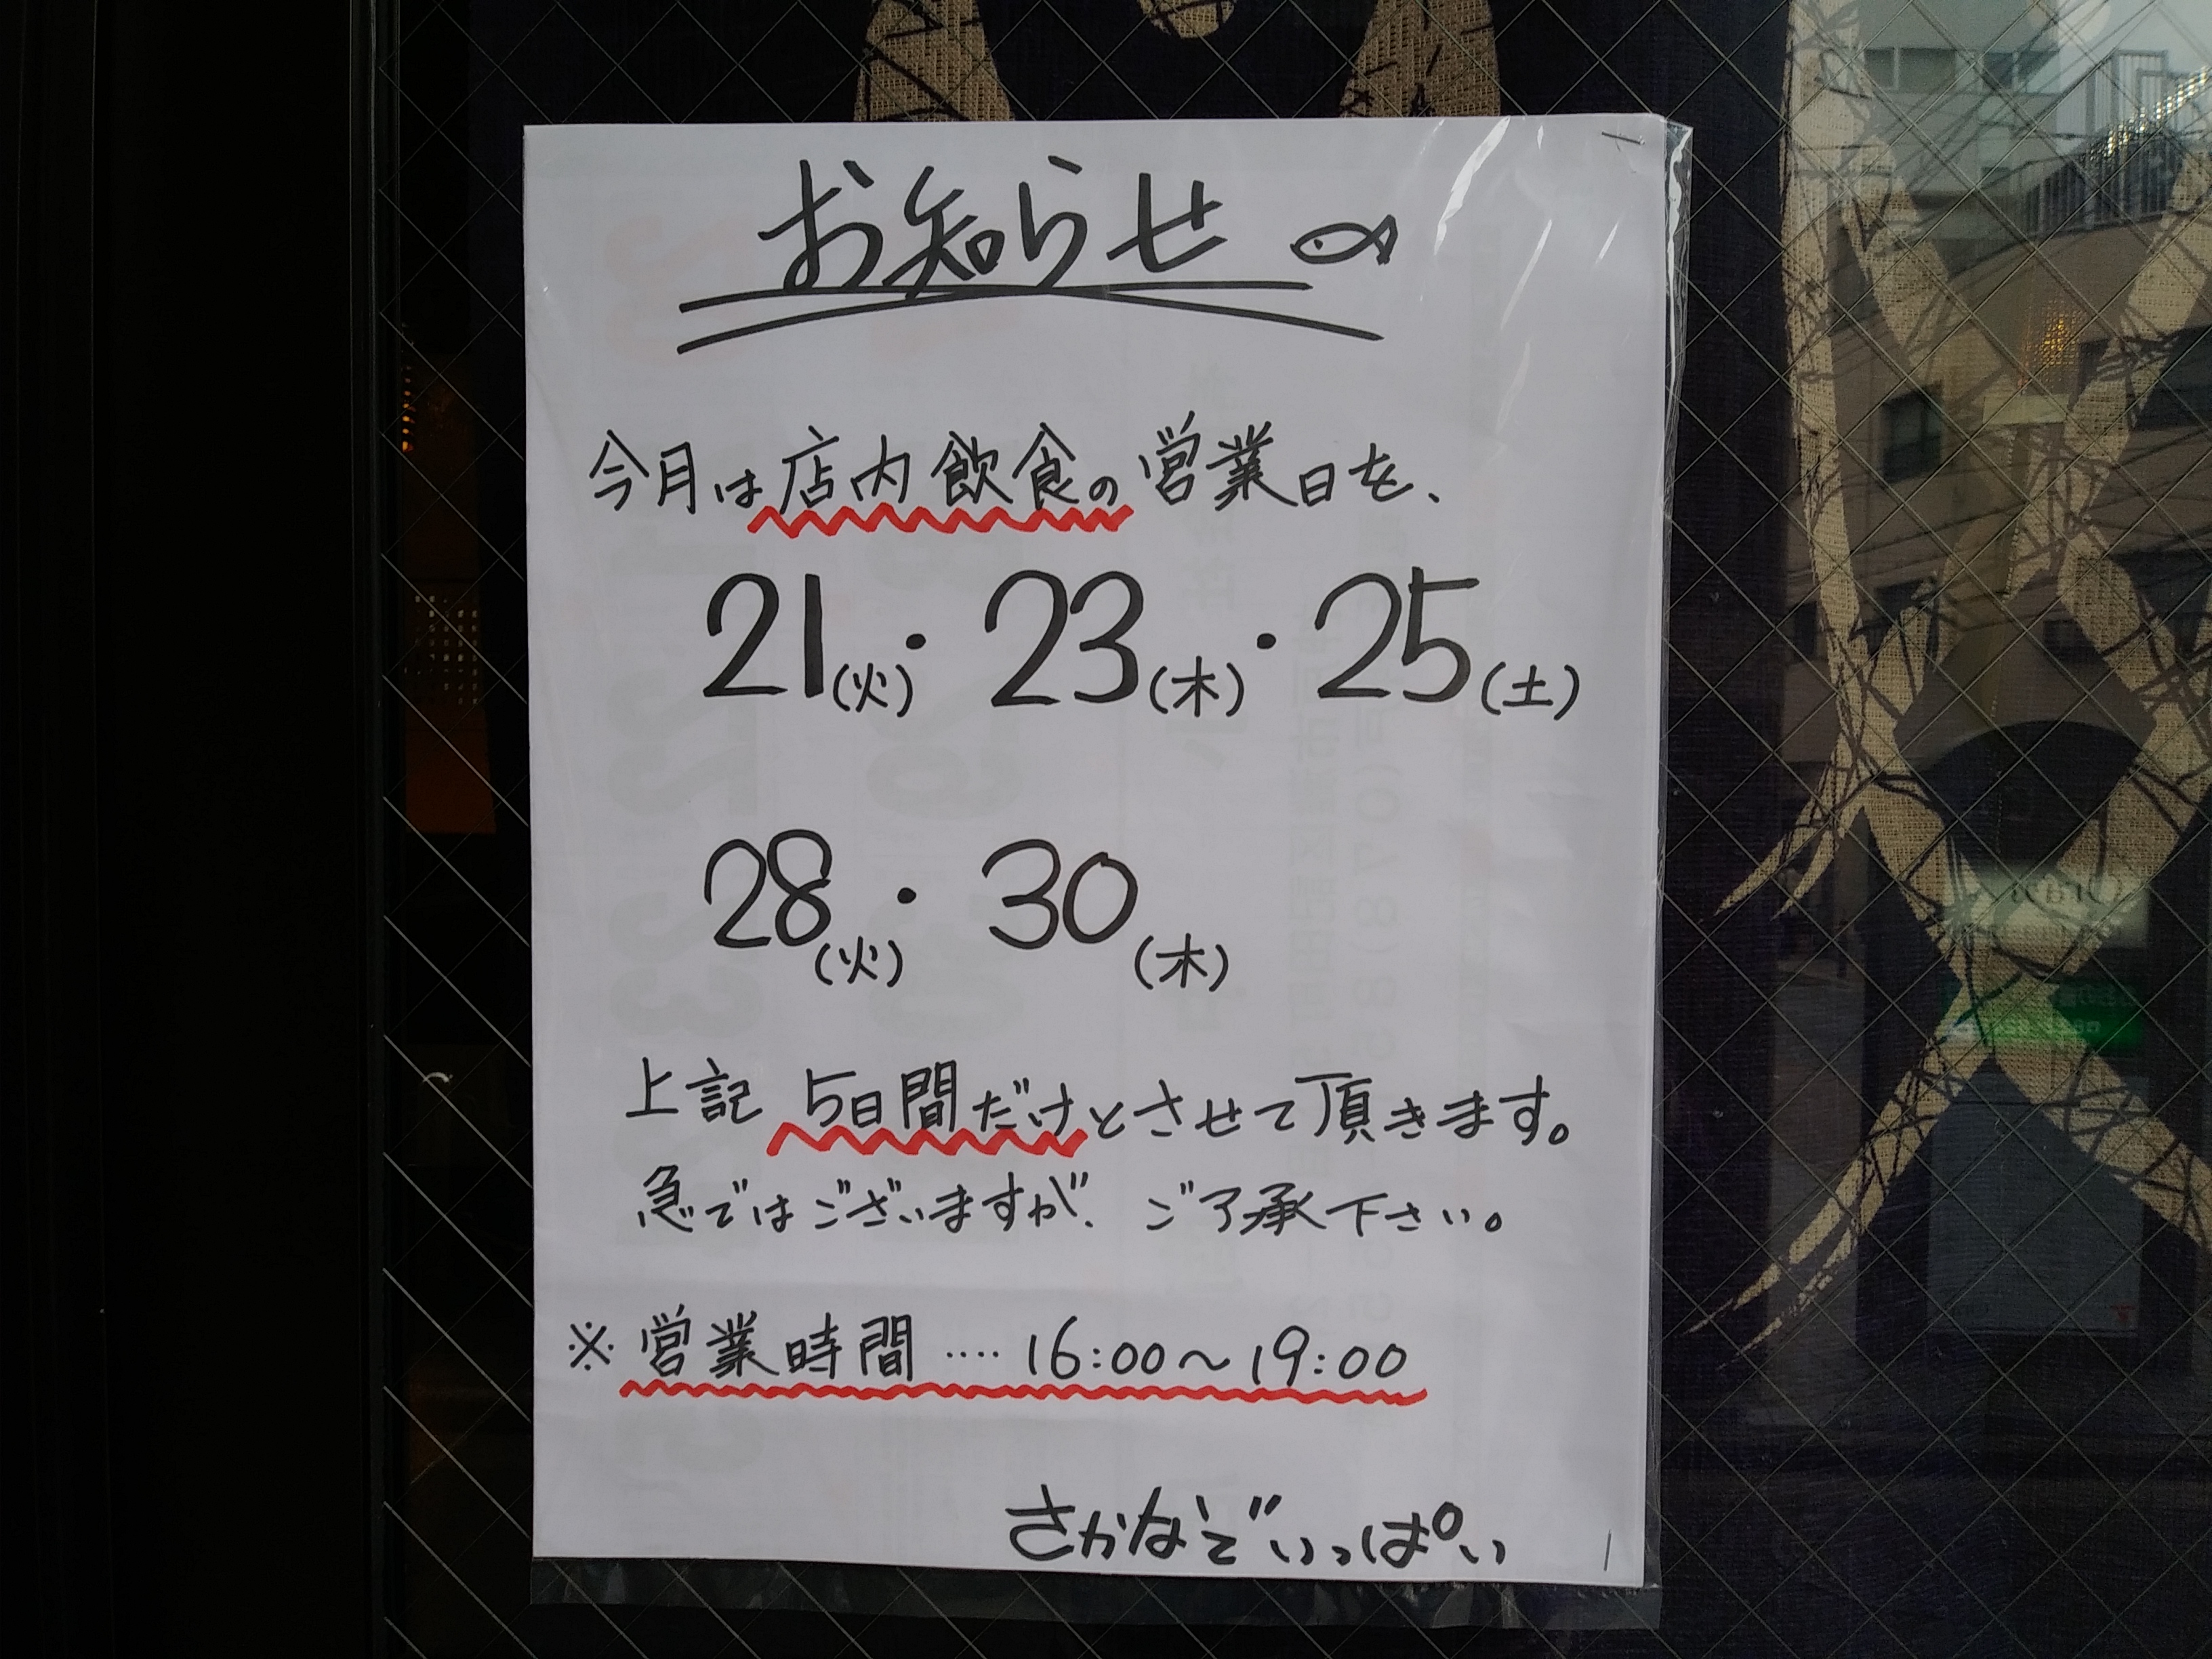 お知らせ
今月は店内飲食の営業日を、
21(火)・23(木)・25(土)
28(火)・30(木)
上記 5日間だけとさせて頂きます。
急ではございますが、ご了承下さい。
※営業時間‥‥16:00～19:00
さかなでいっぱい